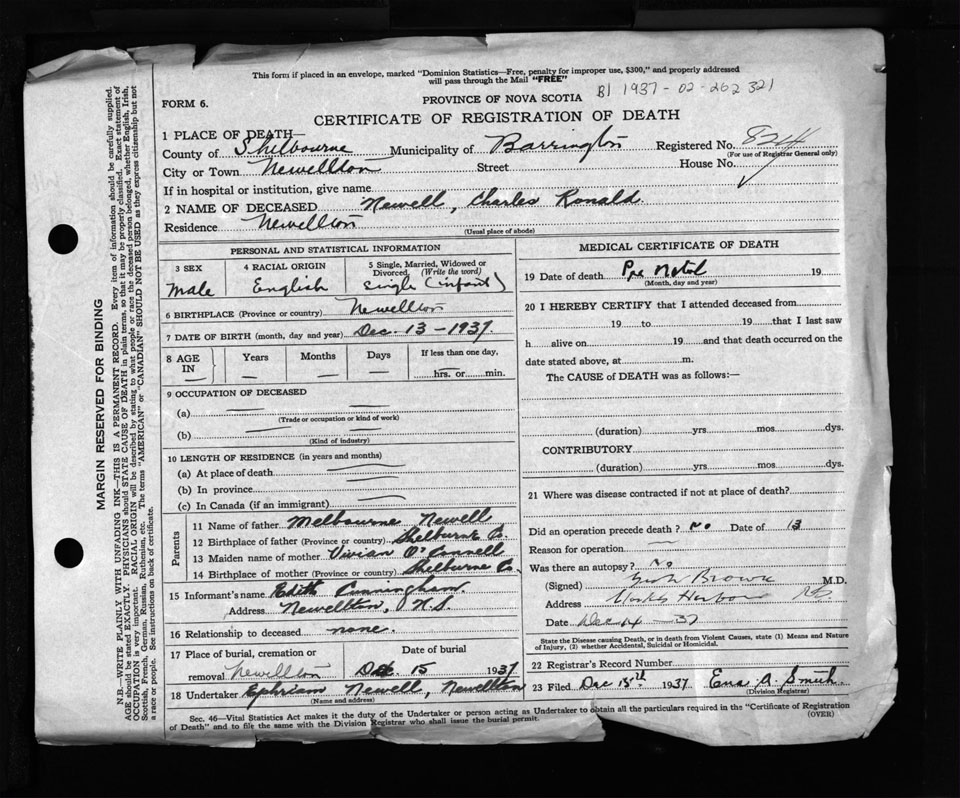 This form if placed in an envelope, marked "Dominion Statistics—Free, penalty for improper use, $300," and properly addressed
will pass through the Mail "FREE"
B1 1937-02-262321
FORM 6.
PROVINCE OF NOVA SCOTIA
CERTIFICATE OF REGISTRATION OF DEATH
1 PLACE OF DEATH—
County of Shelbourne Municipality of Barrington Registered No. 824
(For use of Registrar General only)
City or Town Newellton Street House No.
If in hospital or institution, give name
2 NAME OF DECEASED Newell, Charles Ronald.
Residence Newellton
(Usual place of abode)
PERSONAL AND STATISTICAL INFORMATION
3 SEX 4 RACIAL ORIGIN 5 Single, Married, Widowed or
Divorced (Write the word)
Male English Single (infant)
6 BIRTHPLACE (Province or country) Newellton
7 DATE OF BIRTH (month, day and year) Dec. 13-1937.
8 AGE Years Months Days If less than one day,
IN — — — — hrs. or min.
9 OCCUPATION OF DECEASED
(a) —
(Trade or occupation or kind of work)
(b) —
(Kind of industry)
10 LENGTH OF RESIDENCE (in years and months)
(a) At place of death
(b) In province
(c) In Canada (if an immigrant)
Parents
11 Name of father Melbourne Newell
12 Birthplace of father (Province or country) Shelburne Co.
13 Maiden name of mother Vivian O'Connell
14 Birthplace of mother (Province or country) Shelburne Co.
15 Informant's name Edith Cunningham.
Address Newellton, N.S.
16 Relationship to deceased none.
17 Place of burial, cremation or Date of burial
removal Newellton Dec 15 1937
18 Undertaker Ephriam Newell, Newellton
(Name and address)
MEDICAL CERTIFICATE OF DEATH
19 Date of death Pre Natal 19
(Month, day and year)
20 I HEREBY CERTIFY that I attended deceased from
19 to 19 that I last saw
h alive on 19 and that death occurred on the
date stated above, at m.
The CAUSE of DEATH was as follows:—
(duration) yrs mos dys.
CONTRIBUTORY
(duration) yrs mos dys.
21 Where was disease contracted if not at place of death?
Did an operation precede death? No Date of 13
Reason for operation —
Was there an autopsy? No
(Signed) Brown M.D.
Address Harbour NS
Date Dec 14 - 37
State the Disease causing Death, or in death from Violent Causes, state (1) Means and Nature
of Injury, (2) whether Accidental, Suicidal or Homicidal.
22 Registrar's Record Number
23 Filed Dec 15th 1937 Ena A. Smith.
(Division Registrar)
Sec. 46—Vital Statistics Act makes it the duty of the Undertaker or person acting as Undertaker to obtain all the particulars required in the "Certificate of Registration
of Death" and to file the same with the Division Registrar who shall issue the burial permit.
(OVER)
MARGIN RESERVED FOR BINDING
N.B.—WRITE PLAINLY WITH UNFADING INK—THIS IS A PERMANENT RECORD. Every item of information should be carefully supplied.
AGE should be stated EXACTLY. PHYSICIANS should STATE CAUSE OF DEATH in plain terms, so that it may be properly classified. Exact statement of
OCCUPATION is very important. RACIAL ORIGIN will be described by stating to what people or race the deceased person belonged, whether English, Irish,
Scottish, French, German, Russian, Ruthenian, etc. The terms "AMERICAN" or "CANADIAN" SHOULD NOT BE USED as they express citizenship but not
a race or people. See instructions on back of certificate.